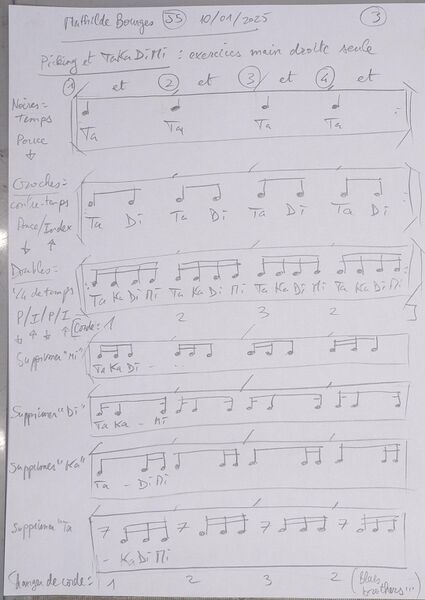 Mathilde Bourges S5 10/01/2025 3
Picking et TaKaDiMi : exercices main droite seule
1 et 2 et 3 et 4 et
Noires =
Temps
Pouce
↓
Ta Ta Ta Ta
Croches =
contre-temps
Pouce/Index
↓ ↑
Ta Di Ta Di Ta Di Ta Di
Doubles =
1/4 de temps
P/I/P/I
↓ ↑ ↓ ↑
Ta Ka Di Mi Ta Ka Di Mi Ta Ka Di Mi Ta Ka Di Mi
Corde: 1 2 3 2
Supprimer "Mi"
Ta Ka Di -
Supprimer "Di"
Ta Ka - Mi
Supprimer "Ka"
Ta - Di Mi
Supprimer "Ta
- Ka Di Mi
Changer de corde: 1 2 3 2 (Blues
brothers"...)